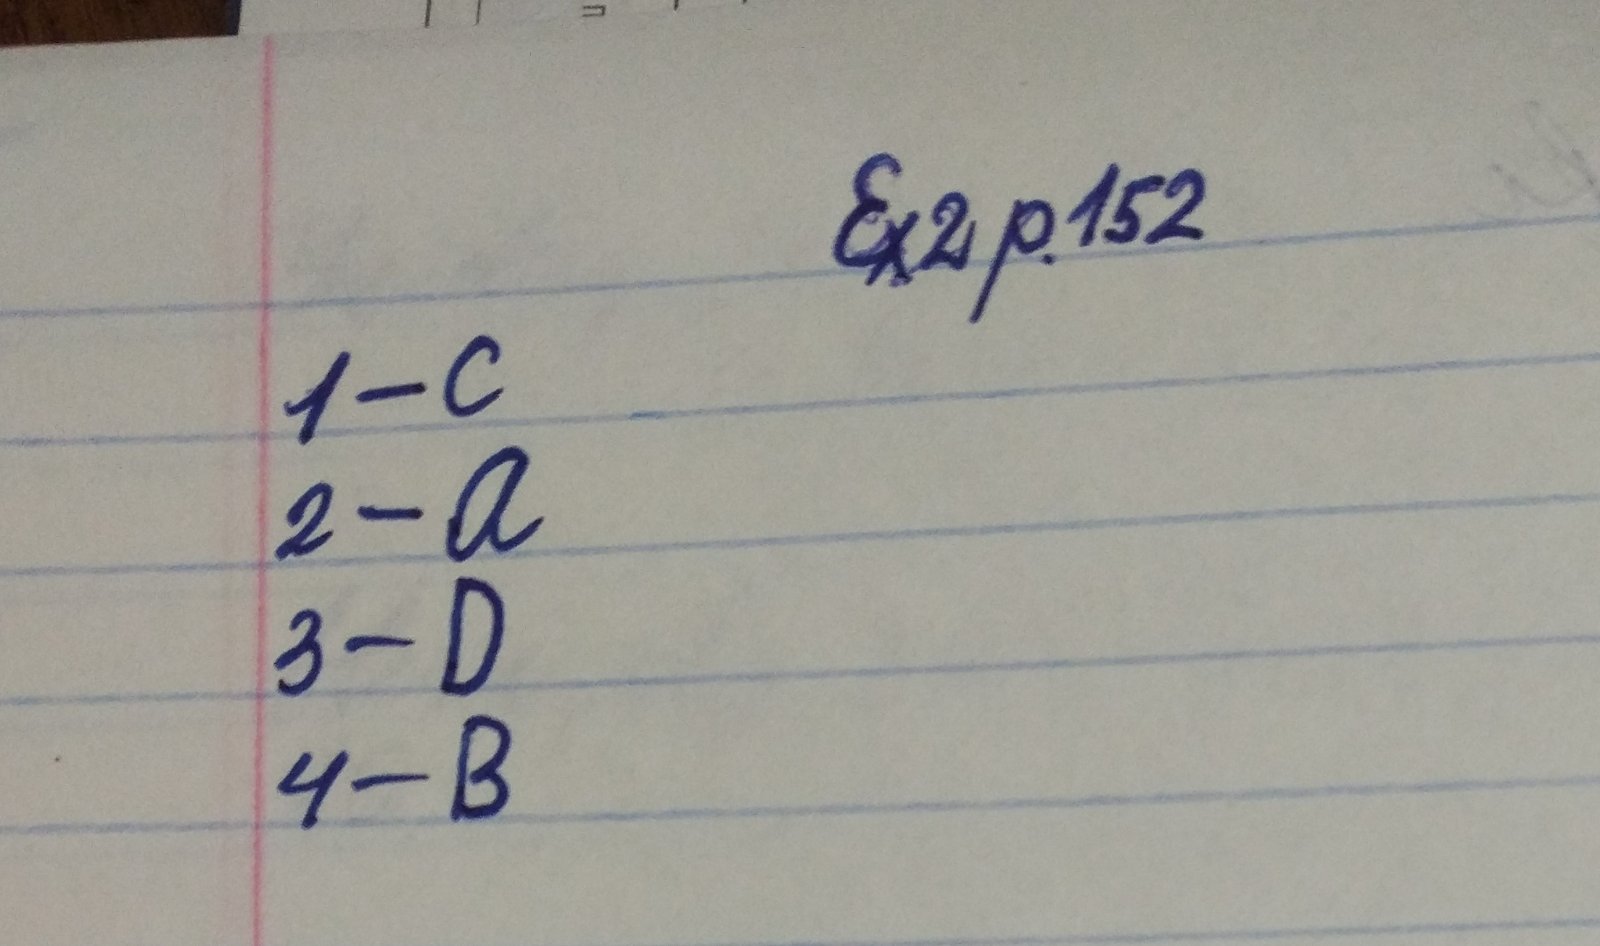 Ex2 p.152
1 – C
2 – A
3 – D
4 – B